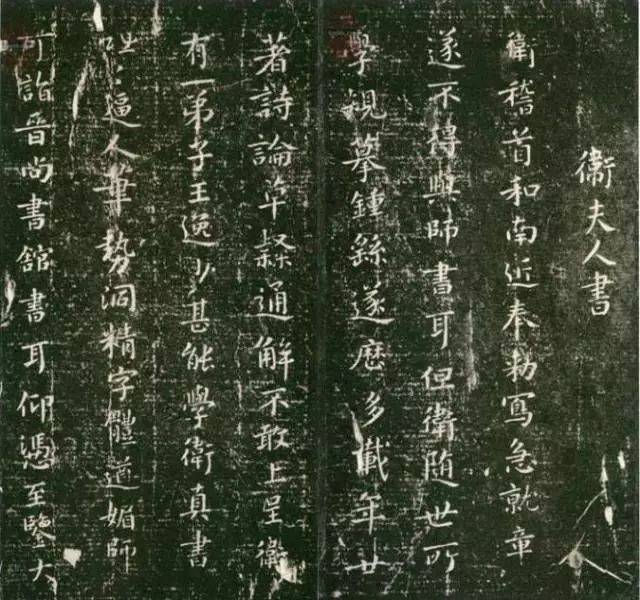 衞夫人書
衞稽首和南近奉勑寫急就章
遂不得與師書耳但衞随世所
學規摹鍾繇遂歷多載年廿
著詩論草隸通解不敢上呈衞
有一弟子王逸少甚能學衞真書
咄咄逼人筆勢洞精字體遒媚師
可詣晉尚書館書耳仰憑至鑒大